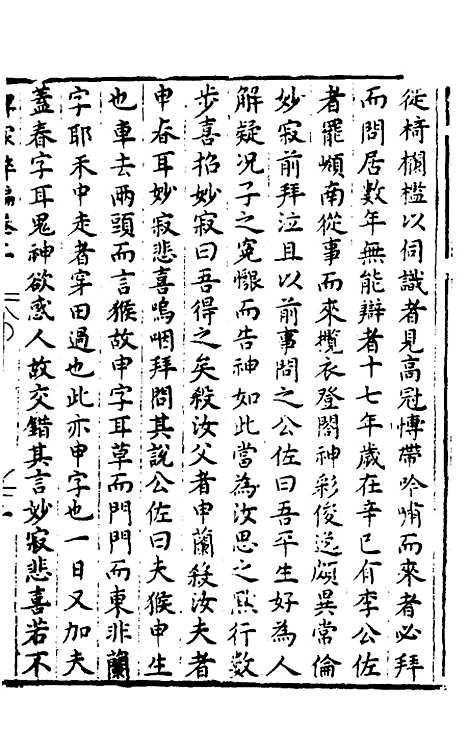 從椅欄檻以伺識者見高冠博帶吟嘯而來者必拜
而問居數年無能辯者十七年歲在辛巳有李公佐
者罷嶺南從事而來攬衣登閣神彩俊逸頗異常倫
妙寂前拜泣且以前事問之公佐曰吾平生好為人
解疑況子之寃懇而告神如此當為汝思之默行數
步喜招妙寂曰吾得之矣殺汝父者申蘭殺汝夫者
申春耳妙寂悲喜嗚咽拜問其說公佐曰夫猴申生
也車去兩頭而言猴故申字耳草而門門而東非蘭
字耶禾中走者穿田過也此亦申字也一日又加夫
蓋春字耳鬼神欲惑人故交錯其言妙寂悲喜若不